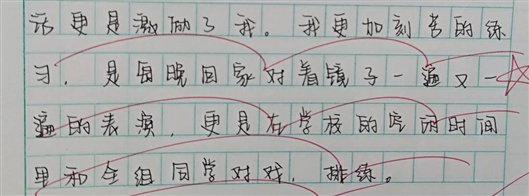 话更是激励了我。我更加刻苦的练
习，是每晚回家对着镜子一遍又一
遍的表演，更是在学校的空闲时间
里和全组同学对戏，排练。